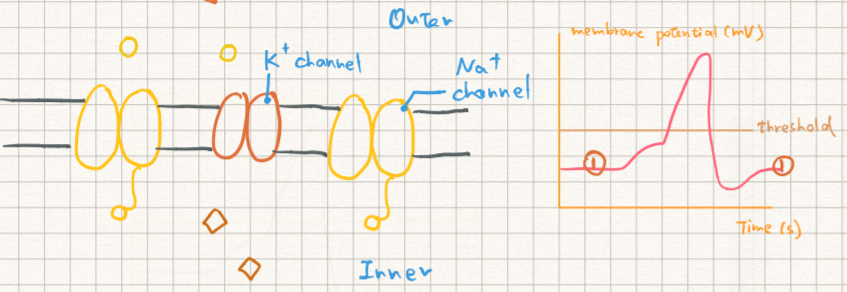 Outer
K⁺ channel
Na⁺
channel
Inner
membrane potential (mV)
threshold
①
①
Time (s)